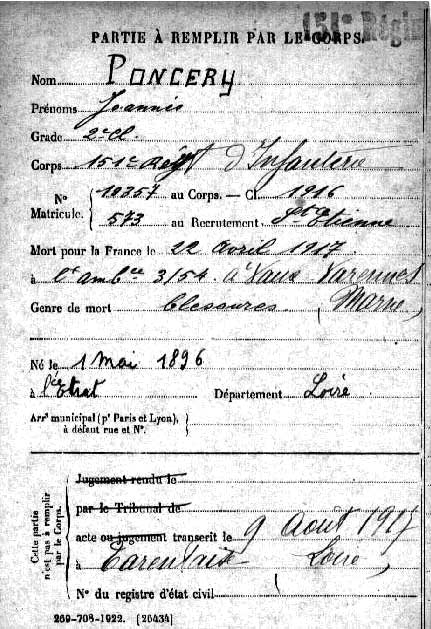 151e Régi
PARTIE À REMPLIR PAR LE CORPS.
Nom PONCERY
Prénoms Joannès
Grade 2e Cl.
Corps 151e Régt d'Infanterie
No 10357 au Corps. — Cl. 1916
Matricule. 573 au Recrutement St Etienne
Mort pour la France le 22 Avril 1917
à l'ambce 3/54 à Vaux Varennes
Genre de mort blessures (Marne)
Né le 1 Mai 1896
à l'Etrat Département Loire
Arrt municipal (pr Paris et Lyon),
à défaut rue et No.
Cette partie n'est pas à remplir par le Corps.
Jugement rendu le
par le Tribunal de
acte ou jugement transcrit le 9 Août 1917
à Tarentaise Loire
No du registre d'état civil
269-708-1922. [26434]